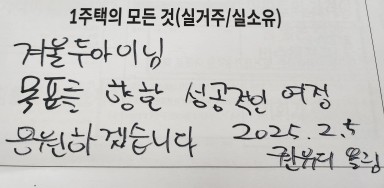 1주택의 모든 것(실거주/실소유)
겨울두아이님
목표를 향한 성공적인 여정
응원하겠습니다 2025.2.5
구란뷰티 올림